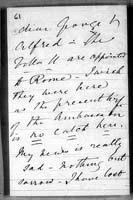 61
dear George &
Alfred - The
Talbots are appointed
to Rome - I wish
they were here
as the present wife
of the Ambassador
is no catch here.
My news is really
sad - nothing but
sorrow - I have lost